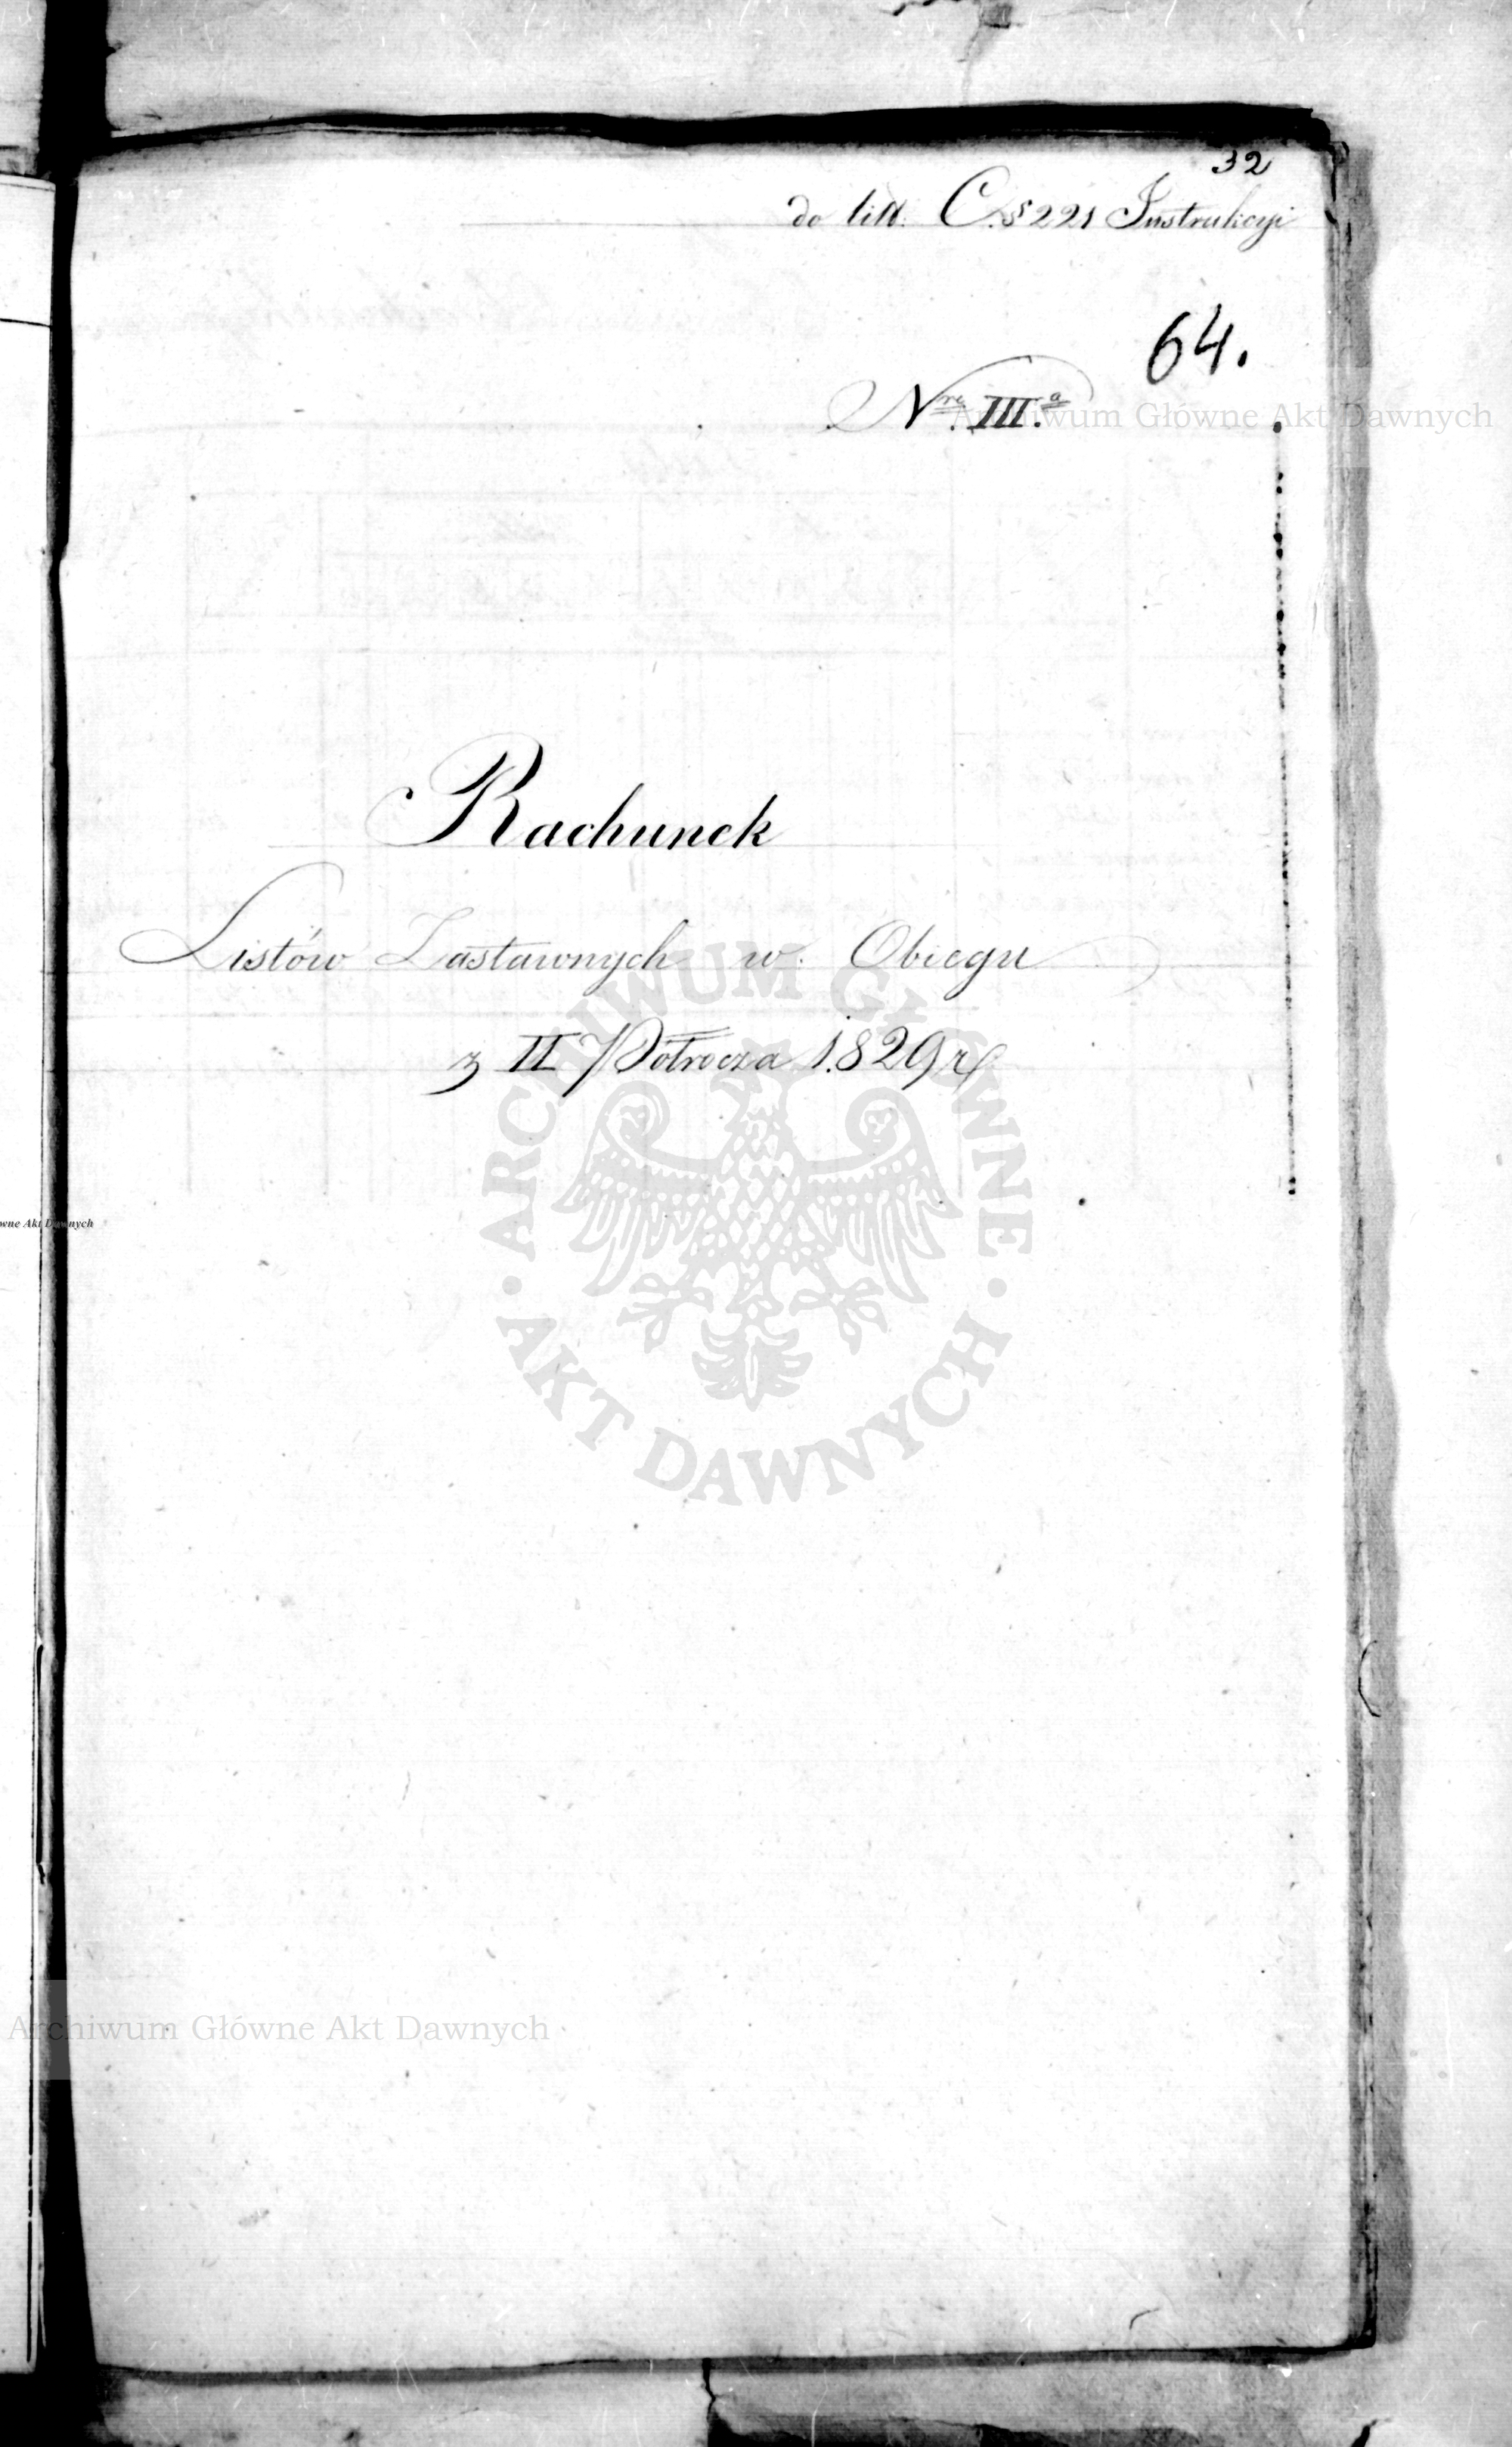 32
do litt. C. § 221 Instrukcyi
64.
Nro III.a
Archiwum Główne Akt Dawnych
Rachunek
Listów Zastawnych w Obiegu
z II Półrocza 1829 r
ARCHIWUM GŁÓWNE
AKT DAWNYCH
wne Akt Dawnych
Archiwum Główne Akt Dawnych